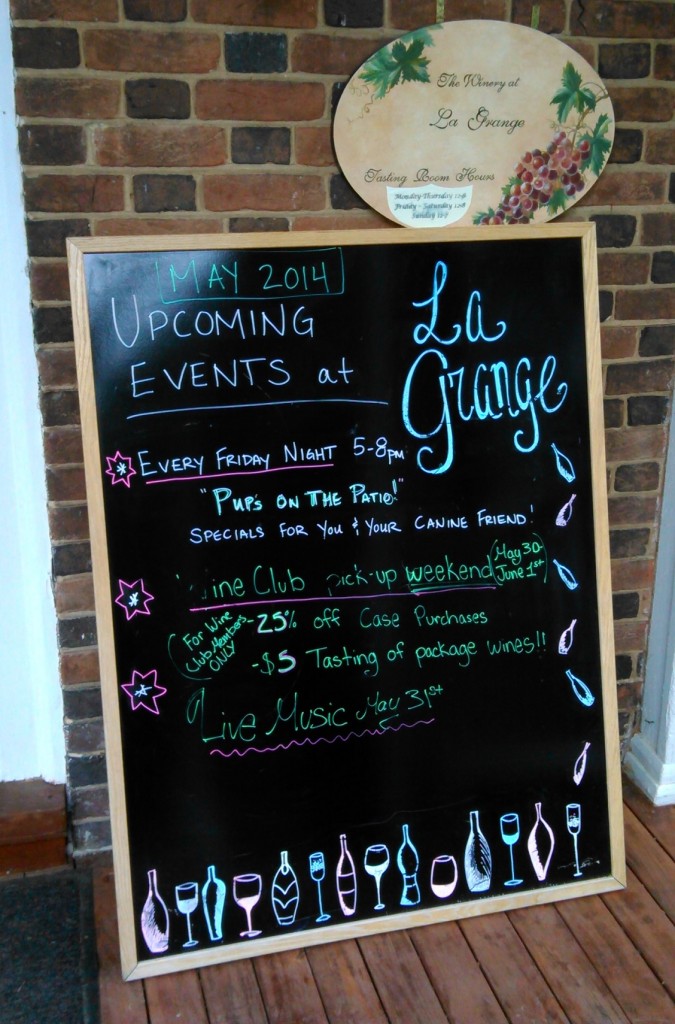 The Winery at
La Grange
Tasting Room Hours
MAY 2014
UPCOMING
EVENTS at
La
Grange
EVERY FRIDAY NIGHT 5-8pm
"PUP'S ON THE PATIO!"
SPECIALS FOR YOU & YOUR CANINE FRIEND!
ine Club pick-up weekend (May 30-
June 1st)
(For Wine
Club Members
ONLY
-25% off Case Purchases
-$5 Tasting of package wines!!
Live Music May 31st